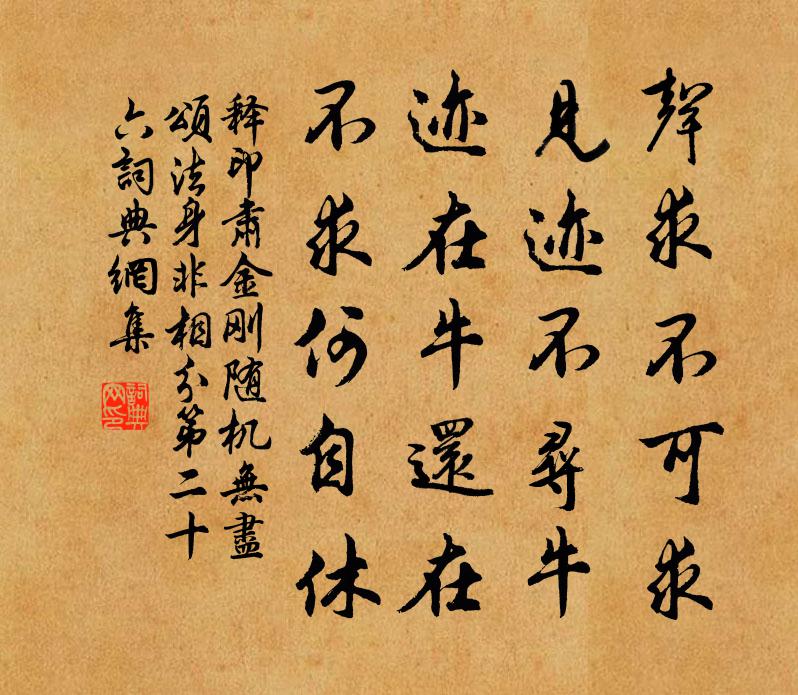 聲求不可求
見迹不尋牛
迹在牛還在
不求何自休
释印肃金刚随机無盡
頌法身非相分第二十
六詞典網集
詞典
网印